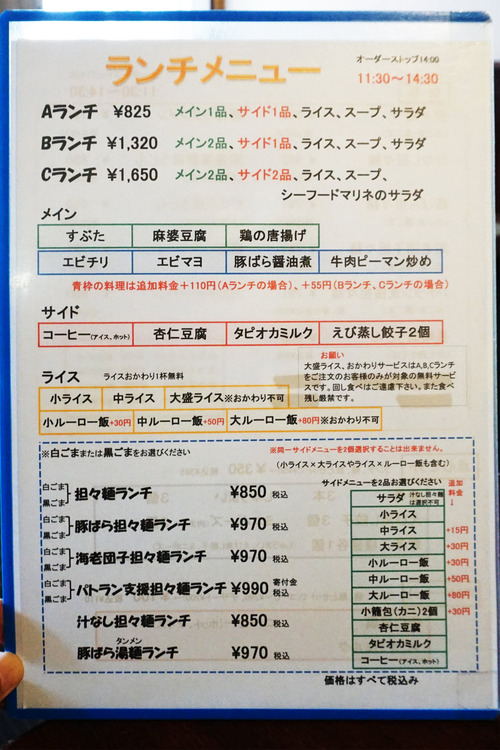 ランチメニュー
オーダーストップ14:00
11:30～14:30
Aランチ ¥825 メイン1品、サイド1品、ライス、スープ、サラダ
Bランチ ¥1,320 メイン2品、サイド1品、ライス、スープ、サラダ
Cランチ ¥1,650 メイン2品、サイド2品、ライス、スープ、
シーフードマリネのサラダ
メイン
すぶた 麻婆豆腐 鶏の唐揚げ
エビチリ エビマヨ 豚ばら醤油煮 牛肉ピーマン炒め
青枠の料理は追加料金＋110円（Aランチの場合）、＋55円（Bランチ、Cランチの場合）
サイド
コーヒー（アイス、ホット） 杏仁豆腐 タピオカミルク えび蒸し餃子2個
お願い
大盛ライス、おかわりサービスはA,B,Cランチ
をご注文のお客様のみが対象の無料サービ
スです。回し食べはご遠慮下さい。また食べ
残し厳禁です。
ライス ライスおかわり1杯無料
小ライス 中ライス 大盛ライス※おかわり不可
小ルーロー飯+30円 中ルーロー飯+50円 大ルーロー飯+80円※おかわり不可
※白ごままたは黒ごまをお選びください
※同一サイドメニューを2個選択することは出来ません。
（小ライス×大ライスやライス×ルーロー飯も含む）
白ごま
黒ごま
担々麺ランチ ¥850 税込
白ごま
黒ごま
豚ばら担々麺ランチ ¥970 税込
白ごま
黒ごま
海老団子担々麺ランチ ¥970 税込
白ごま
黒ごま
パトラン支援担々麺ランチ ¥990 寄付金 税込
汁なし担々麺ランチ ¥850 税込
タンメン
豚ばら湯麺ランチ ¥970 税込
サイドメニューを2品お選びください
追加
料金
↓
サラダ 汁なし担々麺は選択不可
小ライス
中ライス +15円
大ライス +30円
小ルーロー飯 +30円
中ルーロー飯 +50円
大ルーロー飯 +80円
小籠包（カニ）2個 +30円
杏仁豆腐
タピオカミルク
コーヒー（アイス、ホット）
価格はすべて税込み